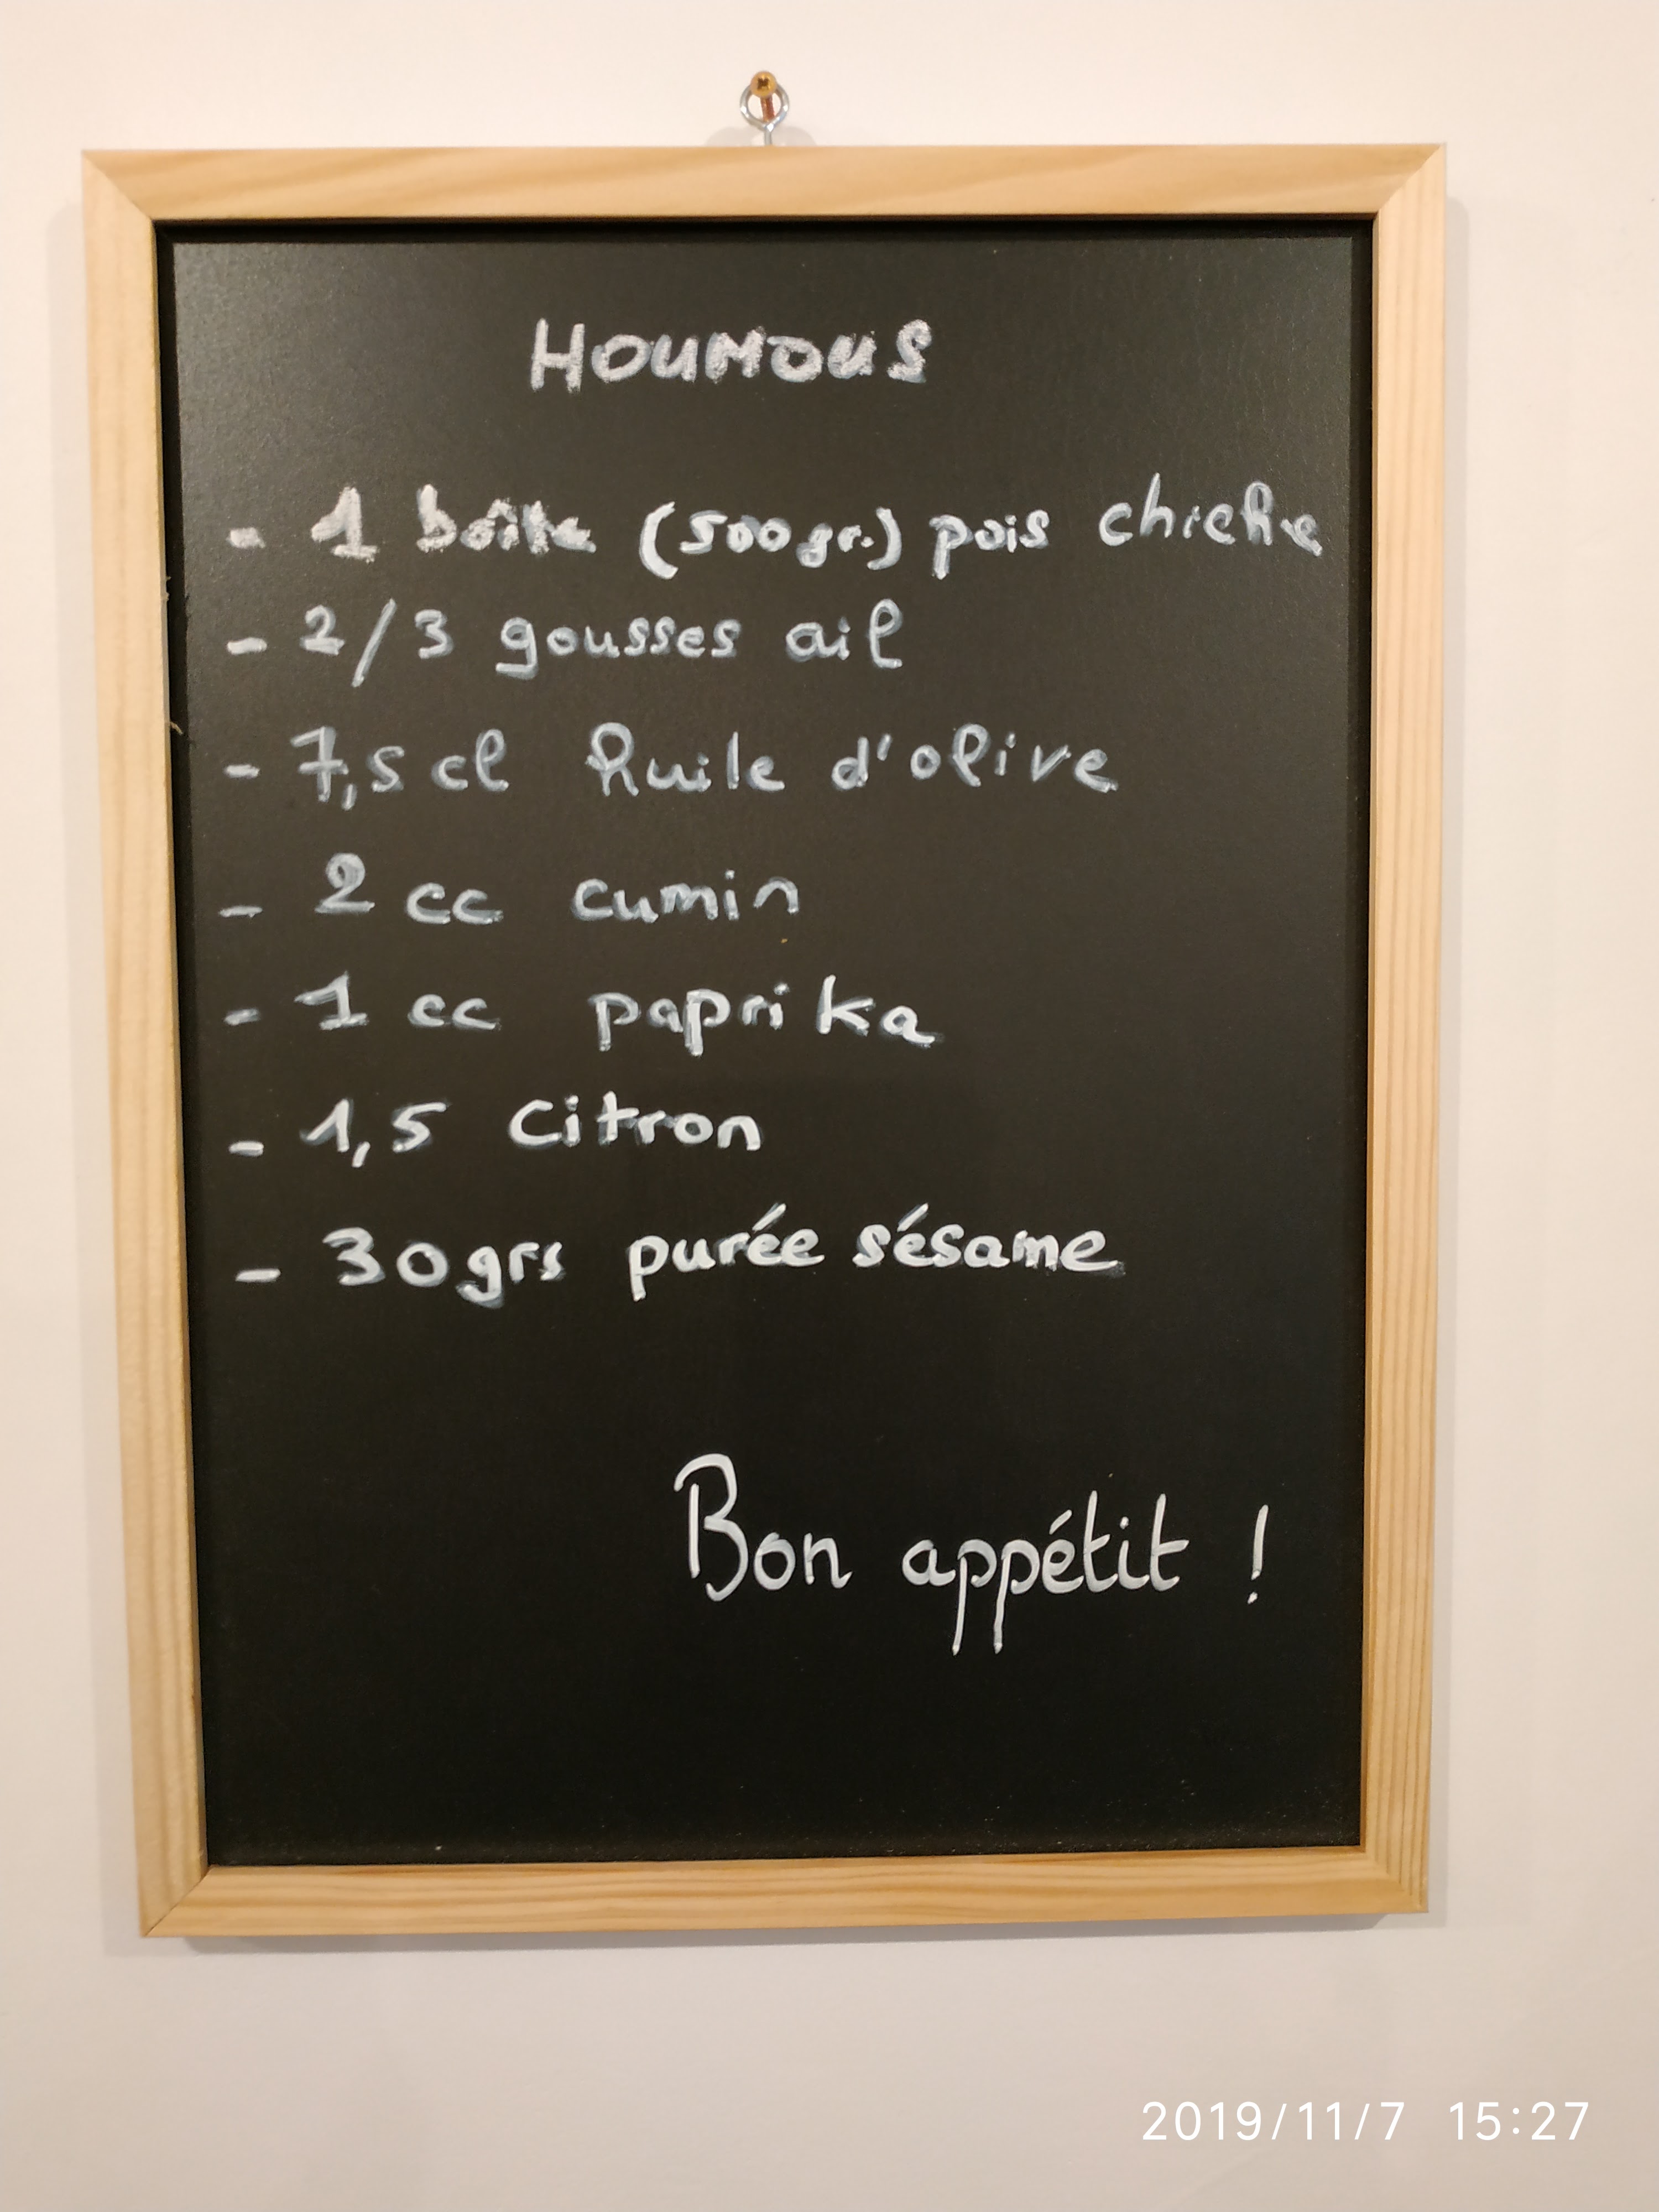 HOUMOUS
- 1 boîte (500gr.) pois chiche
- 2/3 gousses ail
- 7,5 cl huile d'olive
- 2 cc cumin
- 1 cc paprika
- 1,5 citron
- 30grs purée sésame
Bon appétit !
2019/11/7 15:27